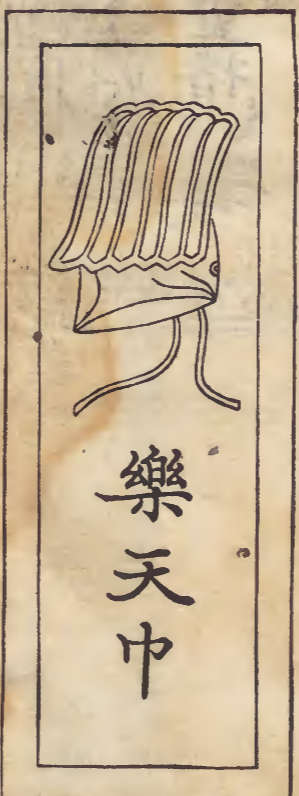 樂天巾